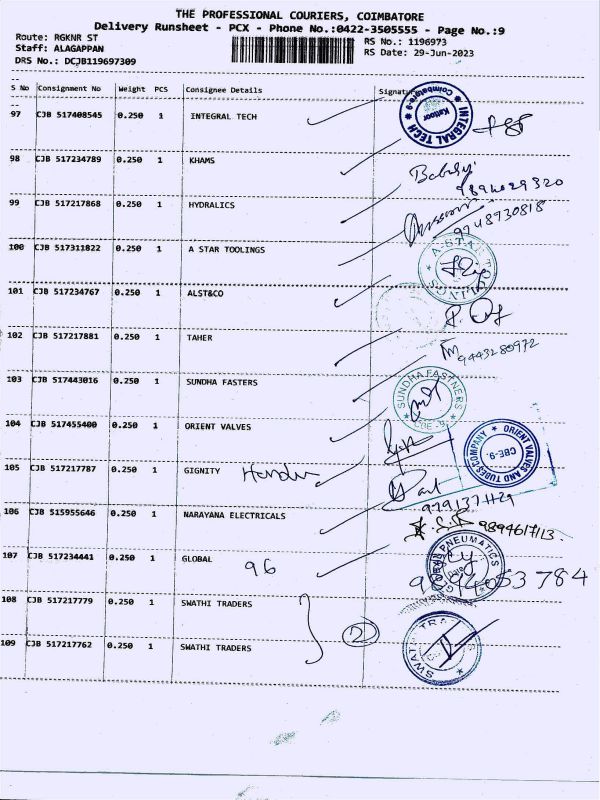 THE PROFESSIONAL COURIERS, COIMBATORE
Delivery Runsheet - PCX - Phone No.:0422-3505555 - Page No.:9
Route: RGKNR ST RS No.: 1196973
Staff: ALAGAPPAN RS Date: 29-Jun-2023
DRS No.: DCJB119697309
S No Consignment No Weight PCS Consignee Details Signature
97 CJB 517408545 0.250 1 INTEGRAL TECH
INTEGRAL TECH Kattoor Coimbatore-9
98 CJB 517234789 0.250 1 KHAMS
9894029320
99 CJB 517217868 0.250 1 HYDRALICS
9748730818
100 CJB 517311822 0.250 1 A STAR TOOLINGS
101 CJB 517234767 0.250 1 ALST&CO
102 CJB 517217881 0.250 1 TAHER
9443280972
103 CJB 517443016 0.250 1 SUNDHA FASTERS
SUNDHA FASTNERS CBE-9.
104 CJB 517455400 0.250 1 ORIENT VALVES
ORIENT VALVES AND TUBES COMPANY CBE-9.
105 CJB 517217787 0.250 1 GIGNITY
106 CJB 515955646 0.250 1 NARAYANA ELECTRICALS
9894617113
107 CJB 517234441 0.250 1 GLOBAL
96
GLOBAL PNEUMATICS
9894053784
108 CJB 517217779 0.250 1 SWATHI TRADERS
2
109 CJB 517217762 0.250 1 SWATHI TRADERS